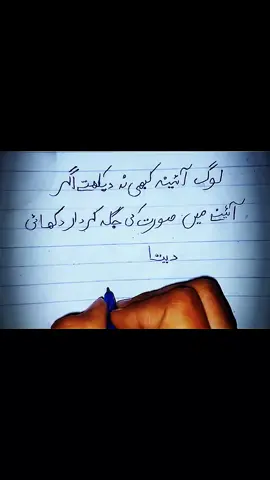 لوگ آئینہ کبھی نہ دیکھتے اگر
آئنے میں صورت کی جگہ کردار دکھائی
دیتا